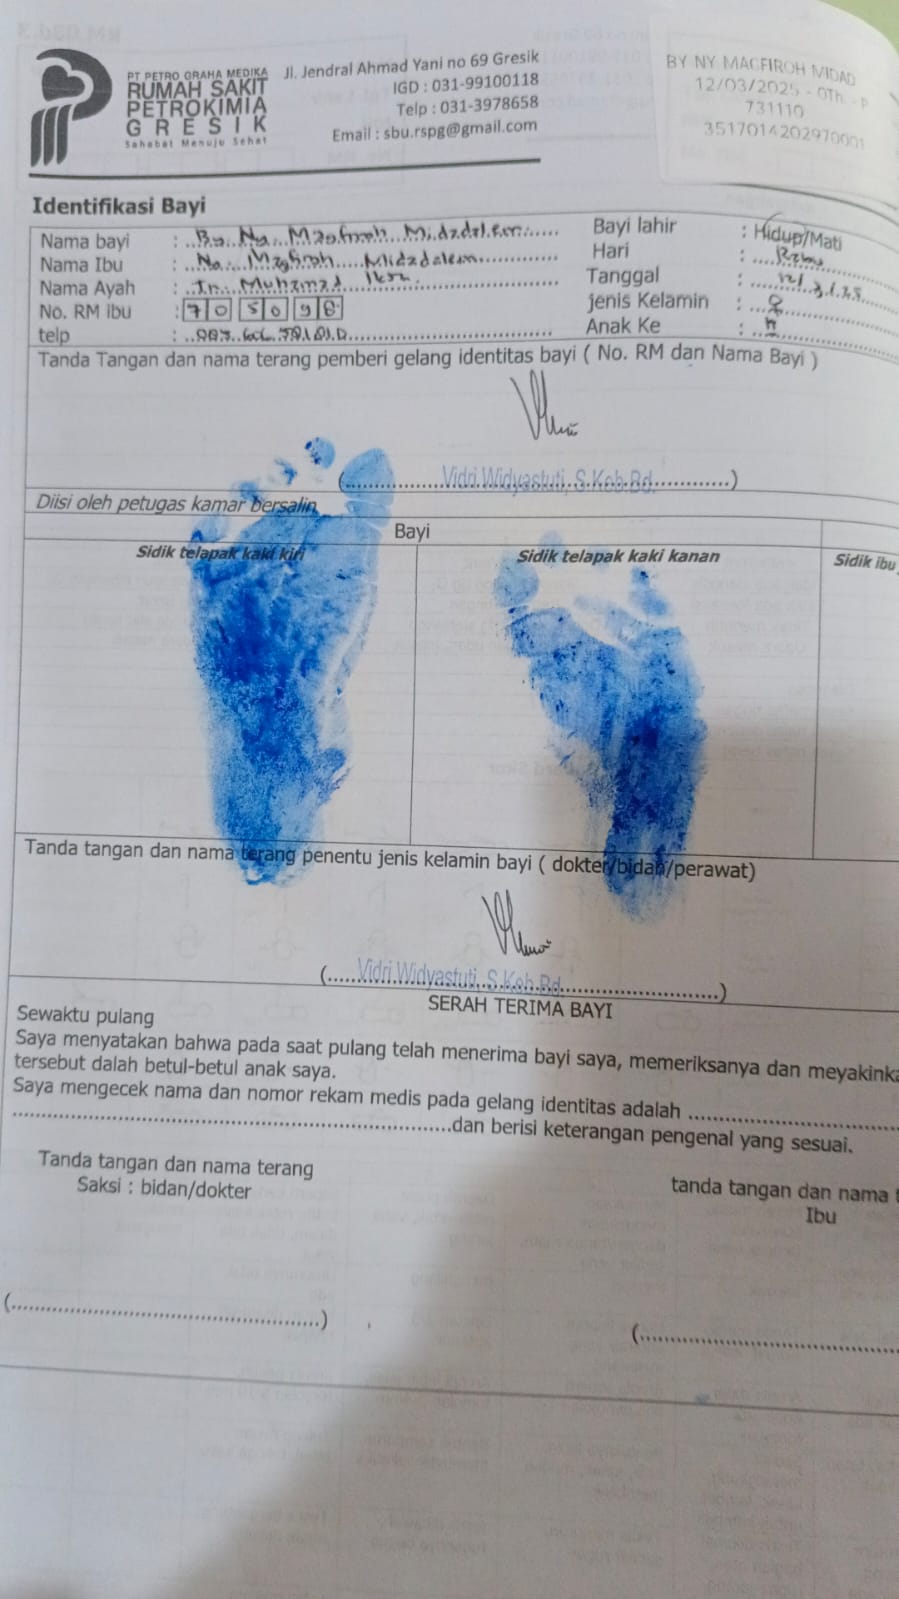 PT PETRO GRAHA MEDIKA
RUMAH SAKIT
PETROKIMIA
GRESIK
Sahabat Menuju Sehat
Jl. Jendral Ahmad Yani no 69 Gresik
IGD : 031-99100118
Telp : 031-3978658
Email : sbu.rspg@gmail.com
BY NY MAGFIROH MIDAD
12/03/2025 - 0Th. - P
731110
3517014202970001
Identifikasi Bayi
Nama bayi : By. Ny.
Nama Ibu : Ny.
Nama Ayah : Tn.
No. RM ibu : 705098
telp :
Bayi lahir : Hidup/Mati
Hari : Rabu
Tanggal :
jenis Kelamin : ♀
Anak Ke :
Tanda Tangan dan nama terang pemberi gelang identitas bayi ( No. RM dan Nama Bayi )
(Vidri Widyastuti, S.Keb.Bd.)
Diisi oleh petugas kamar bersalin
Bayi
Sidik telapak kaki kiri
Sidik telapak kaki kanan
Sidik ibu
Tanda tangan dan nama terang penentu jenis kelamin bayi ( dokter/bidan/perawat)
(Vidri Widyastuti, S.Keb.Bd.)
SERAH TERIMA BAYI
Sewaktu pulang
Saya menyatakan bahwa pada saat pulang telah menerima bayi saya, memeriksanya dan meyakinka
tersebut dalah betul-betul anak saya.
Saya mengecek nama dan nomor rekam medis pada gelang identitas adalah
dan berisi keterangan pengenal yang sesuai.
Tanda tangan dan nama terang
Saksi : bidan/dokter
tanda tangan dan nama
Ibu